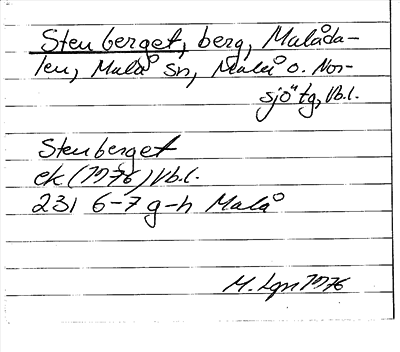 Stenberget, berg, Malåda-
len, Malå sn, Malå o. Nor-
sjö tg, Vb.l.
Stenberget
ek (1976) Vb.l.
231 6-7 g-h Malå
M. Lgn 1976